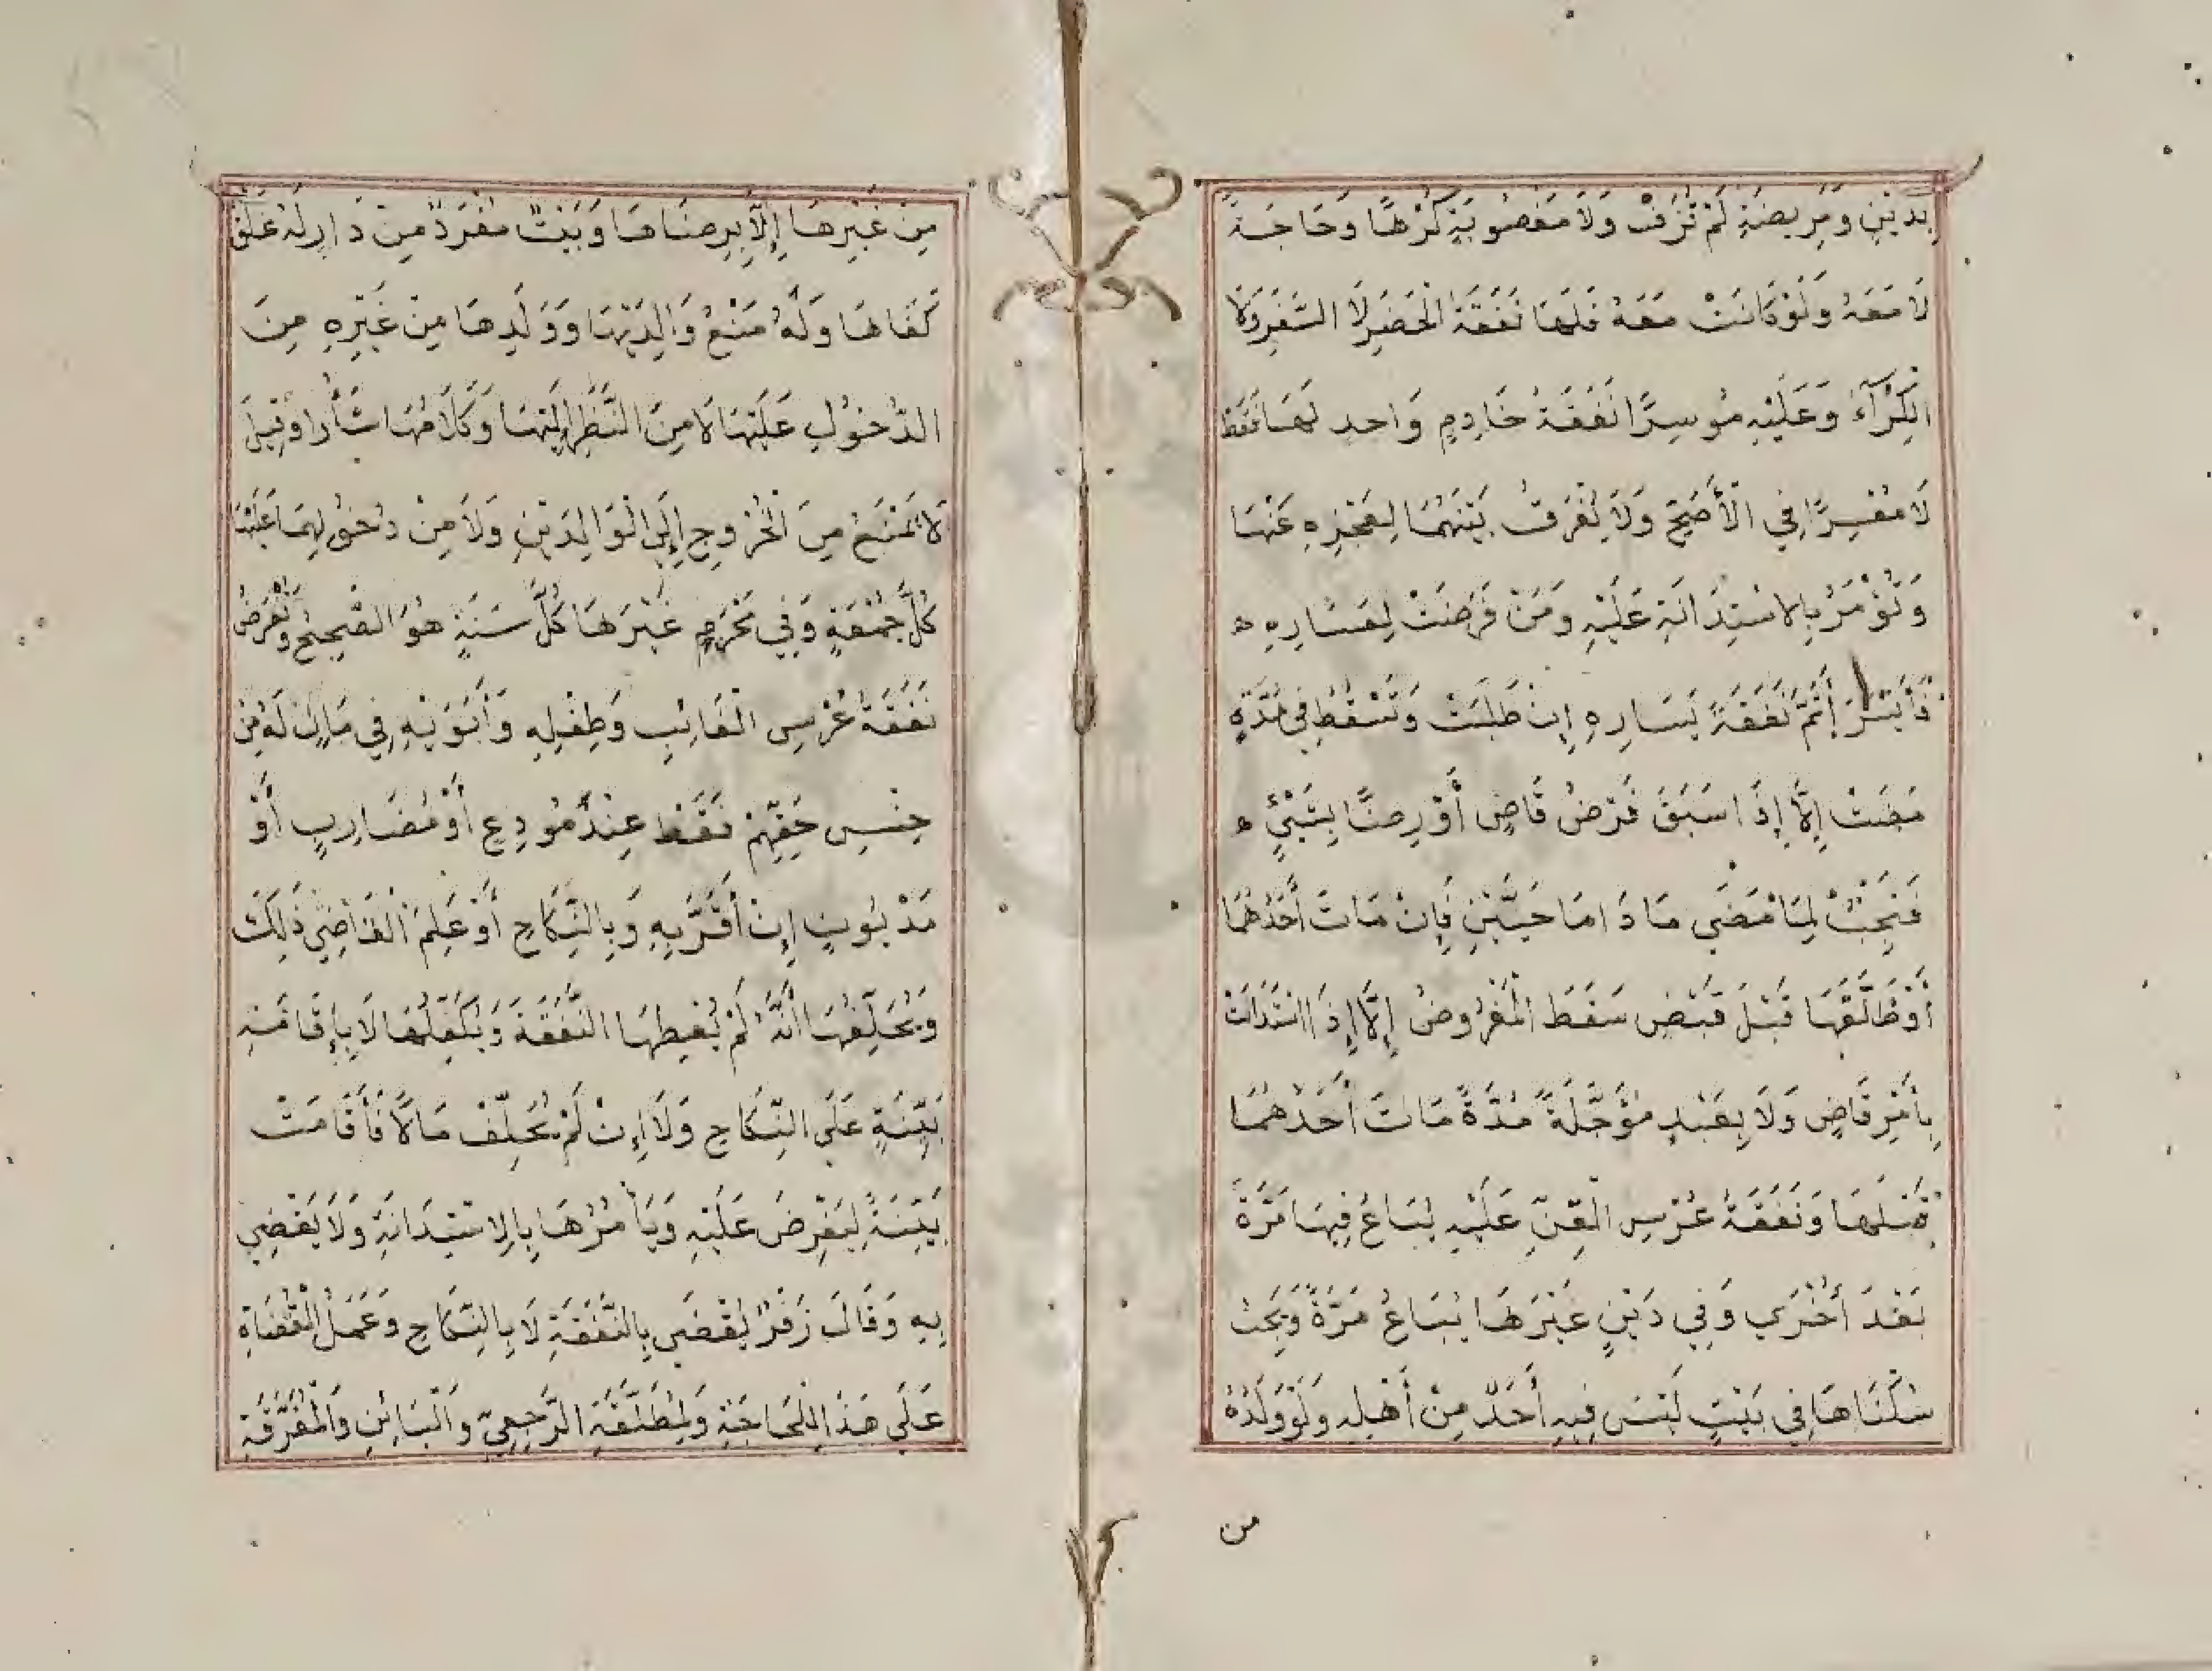 بِدَيْنٍ وَمَرِيضَةٍ لَمْ تُزَفْ وَلَا مَغْصُوبَةٍ كُرْهًا وَحَاجَةً
لَا مَعَهُ وَلَوْ كَانَتْ مَعَهُ فَلَهَا نَفَقَةُ الْحَضَرِ لَا السَّفَرِ وَلَا
الْكِرَآءُ وَعَلَيْهِ مُوسِرًا نَفَقَةُ خَادِمٍ وَاحِدٍ لَهَا فَقَطْ
لَا مُعْسِرًا فِي الْأَصَحِّ وَلَا يُفَرَّقُ بَيْنَهُمَا لِعَجْزِهِ عَنْهَا
وَتُؤْمَرُ بِالاسْتِدَانَةِ عَلَيْهِ وَمَنْ فُرِضَتْ لِعَسَارِهِ
فَأَيْسَرَ أَتَمَّ نَفَقَةَ يَسَارِهِ إِنْ طَلَبَتْ وَتَسْقُطُ فِي مُدَّةٍ
مَضَتْ إِلَّا إِذَا سَبَقَ فَرْضُ قَاضٍ أَوْ رِضًا بِشَيْءٍ
فَتَجِبُ لِمَا مَضَى مَا دَامَا حَيَّيْنِ فَإِنْ مَاتَ أَحَدُهُمَا
أَوْ طَلَّقَهَا قَبْلَ قَبْضٍ سَقَطَ الْمَفْرُوضُ إِلَّا إِذَا اسْتَدَانَتْ
بِأَمْرِ قَاضٍ وَلَا بِعَبْدٍ مُؤَجَّلَةً مُدَّةً مَاتَ أَحَدُهُمَا
قَبْلَهَا وَنَفَقَةُ عُرْسِ الْقِنِّ عَلَيْهِ يُبَاعُ فِيهَا مَرَّةً
بَعْدَ أُخْرَى وَفِي دَيْنٍ غَيْرِهَا يُبَاعُ مَرَّةً وَيَجِبُ
سُكْنَاهَا فِي بَيْتٍ لَيْسَ فِيهِ أَحَدٌ مِنْ أَهْلِهِ وَلَوْ وَلَدُهُ
من
مِنْ غَيْرِهَا إِلَّا بِرِضَاهَا وَبَيْتٌ مُفْرَدٌ مِنْ دَارٍ لَهُ غَلَقٌ
كَفَاهَا وَلَهُ مَنْعُ وَالِدَيْهَا وَوَلَدِهَا مِنْ غَيْرِهِ مِنَ
الدُّخُولِ عَلَيْهَا لَا مِنَ النَّظَرِ إِلَيْهَا وَكَلَامِهَا شَأْرًا وَقِيلَ
لَا تُمْنَعُ مِنَ الْخُرُوجِ إِلَى الْوَالِدَيْنِ وَلَا مِنْ دُخُولِهِمَا عَلَيْهَا
كُلَّ جُمُعَةٍ وَفِي مَحْرَمٍ غَيْرِهَا كُلَّ سَنَةٍ هُوَ الصَّحِيحُ وَتُفْرَضُ
نَفَقَةُ عُرْسِ الْغَائِبِ وَطِفْلِهِ وَأَبَوَيْهِ فِي مَالٍ لَهُ مِنْ
جِنْسِ حَقِّهِمْ فَقَطْ عِنْدَ مُودِعٍ أَوْ مُضَارِبٍ أَوْ
مَدْيُونٍ إِنْ أَقَرَّ بِهِ وَبِالنِّكَاحِ أَوْ عَلِمَ الْقَاضِي ذَلِكَ
وَيُحَلِّفُهَا أَنَّهُ لَمْ يُعْطِهَا النَّفَقَةَ وَيُكَفِّلُهَا لَا بِإِقَامَةِ
بَيِّنَةٍ عَلَى النِّكَاحِ وَلَا إِنْ لَمْ يُخَلِّفْ مَالًا فَأَقَامَتْ
بَيِّنَةً لِيَفْرِضَ عَلَيْهِ وَيَأْمُرُهَا بِالِاسْتِدَانَةِ وَلَا يَقْضِي
بِهِ وَقَالَ زُفَرُ يَقْضِي بِالنَّفَقَةِ لَا بِالنِّكَاحِ وَعَمَلُ الْقُضَاةِ
عَلَى هَذَا لِلْحَاجَةِ وَلِمُطَلَّقَةِ الرَّجْعِيِّ وَالْبَائِنِ وَالْمُفَرَّقَةِ